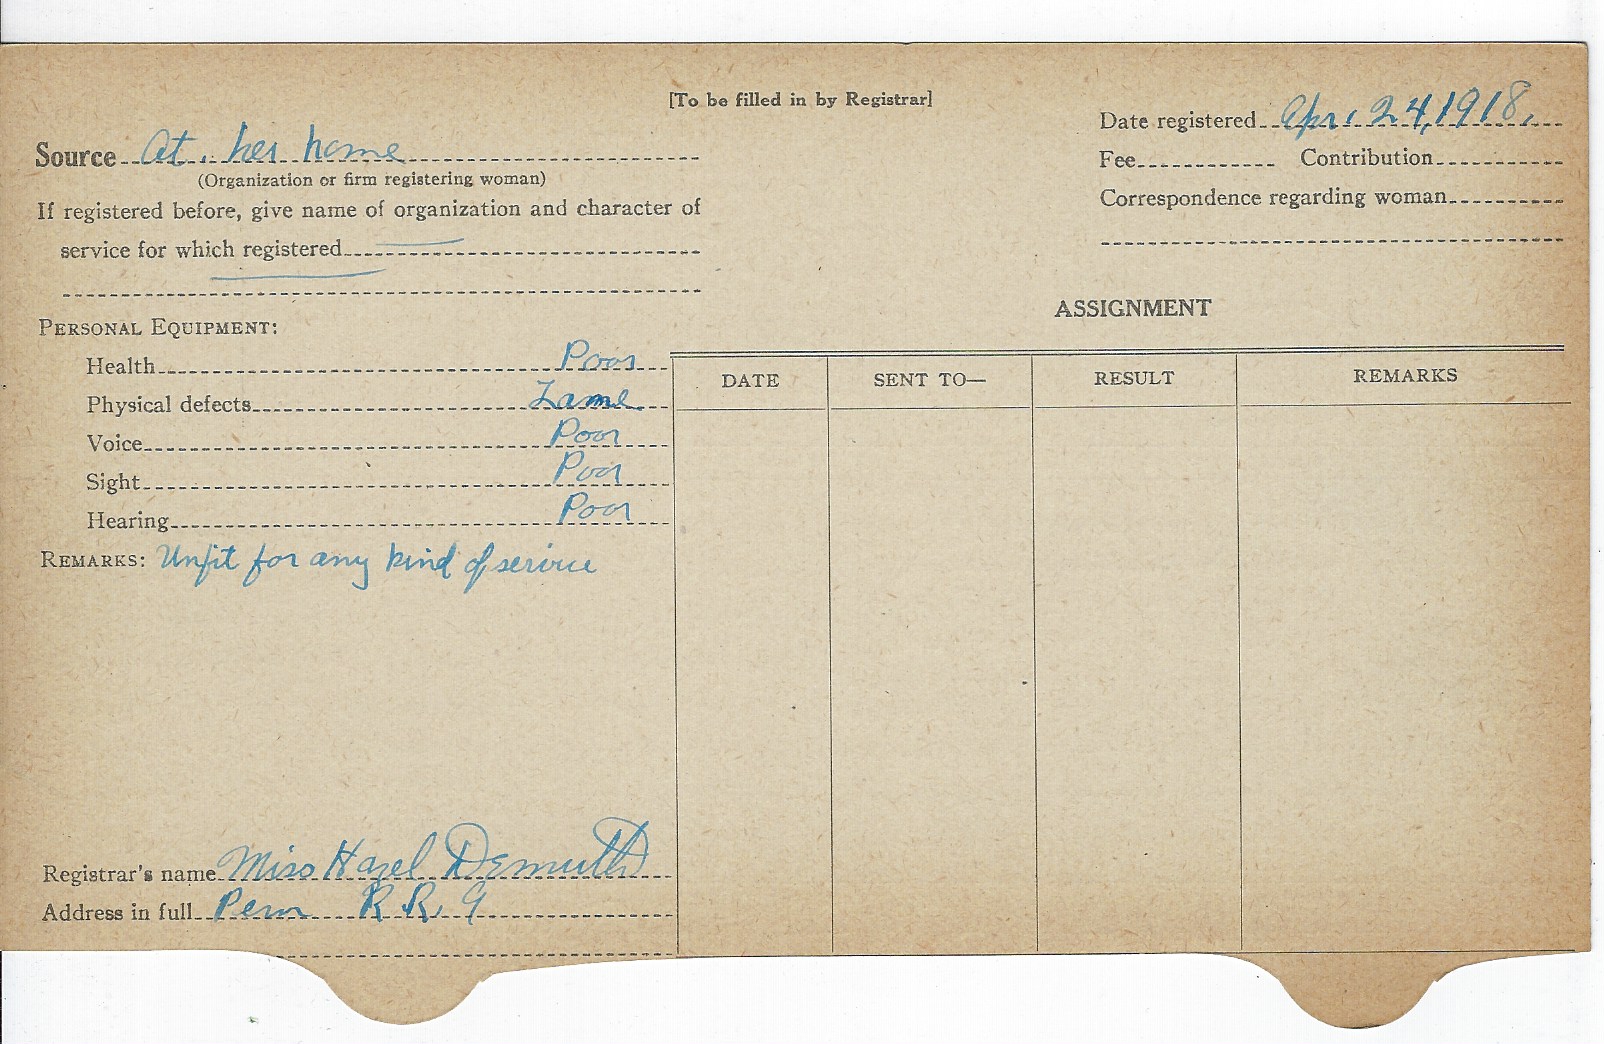 [To be filled in by Registrar]
Date registered Apr. 24, 1918.
Source At her home
Fee Contribution
(Organization or firm registering woman)
Correspondence regarding woman
If registered before, give name of organization and character of
service for which registered
ASSIGNMENT
PERSONAL EQUIPMENT:
Health Poor
DATE SENT TO— RESULT REMARKS
Physical defects Lame
Voice Poor
Sight Poor
Hearing Poor
REMARKS: Unfit for any kind of service
Registrar's name Miss Hazel Demuth
Address in full Peru R.R. 9